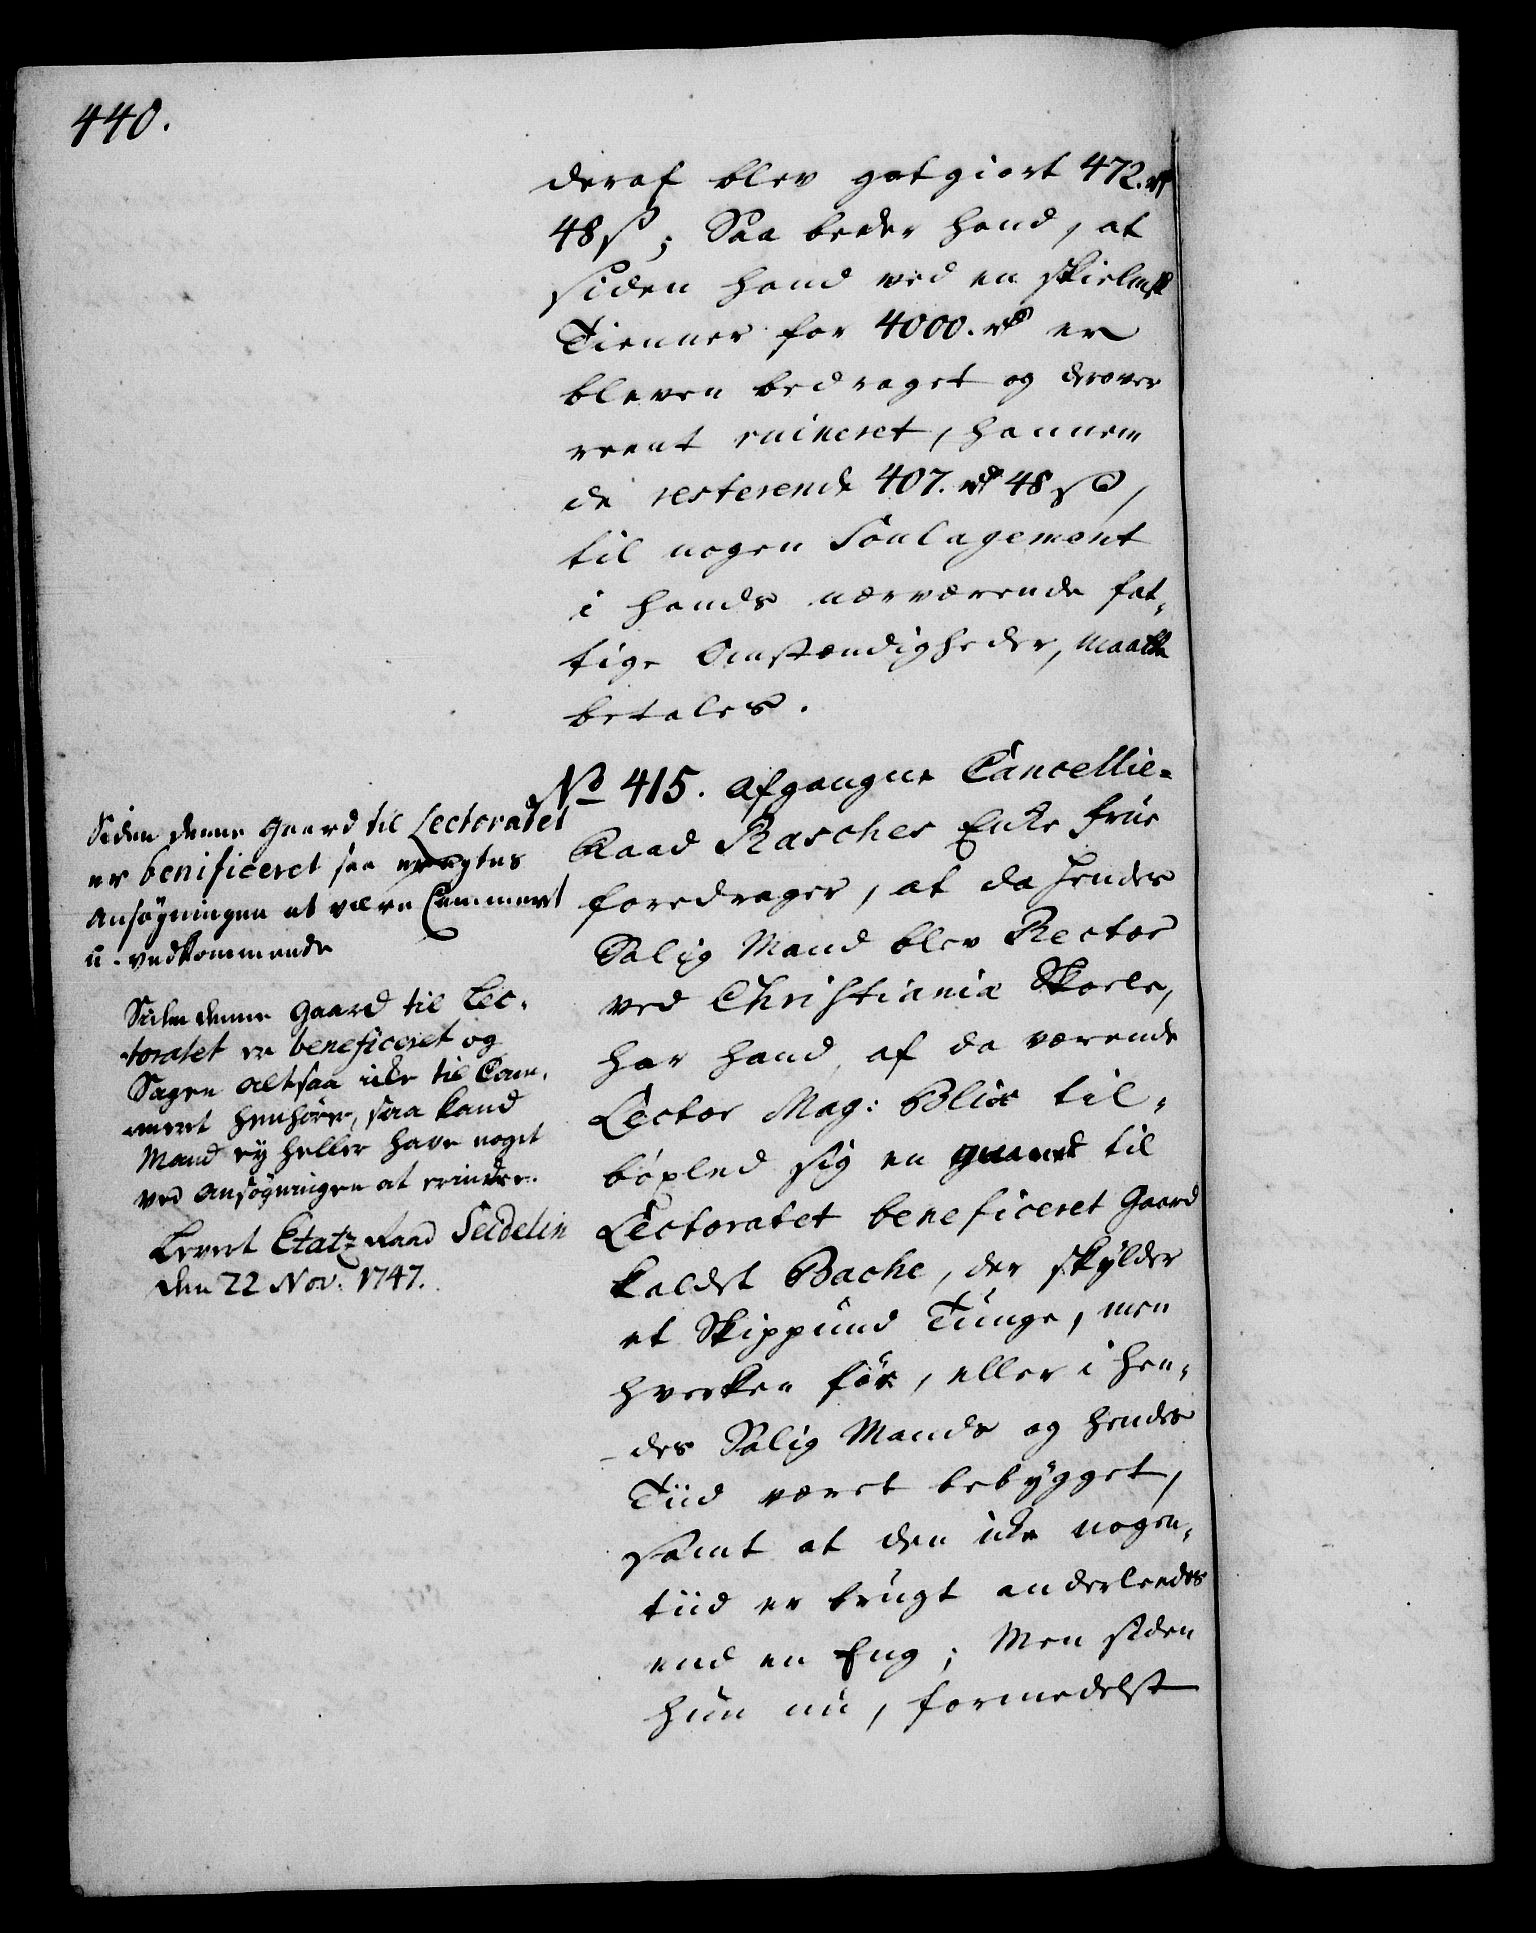 440.
deraf blev gotgiort 472. rd
48 ß; Saa beder hand, at
siden hand ved en skielmsk
Tienner for 4000. rd er
bleven bedraget og derover
reent ruineret, hannem
de resterende 407. rd 48 ß,
til nogen Soulagement
i hands nærværende fat-
tige Omstændigheder, maatte
betales.
No 415. Afgangne Cancellie-
Raad Rasches Enke Frue
foredrager, at da hendes
Salig Mand blev Rector
ved Christiania Skoele,
har hand af da værende
Lector Mag: Blix til-
böxled sig en til
Lectoratet beneficeret Gaard
kaldet Bache, der skylder
et Skippund Tunge, men
hverken för, eller i hen-
des Salig Mands og hendes
Tiid været bebygget,
samt at den icke nogen-
tiid er brugt anderleedes
end en Eng; Men siden
hun nu, formedelst
Siden denne gaard til Lectoratet
er benificeret saa eragtes
Ansøgningen at være Cammeret
u-vedkommende
Siden denne Gaard til Lec-
toratet er beneficeret og
Sagen altsaa icke til Cam-
meret henhörer, saa kand
Mand ey heller have noget
ved Ansøgningen at erindre.
Levert Etatz Raad Seidelin
den 22 Nov: 1747.